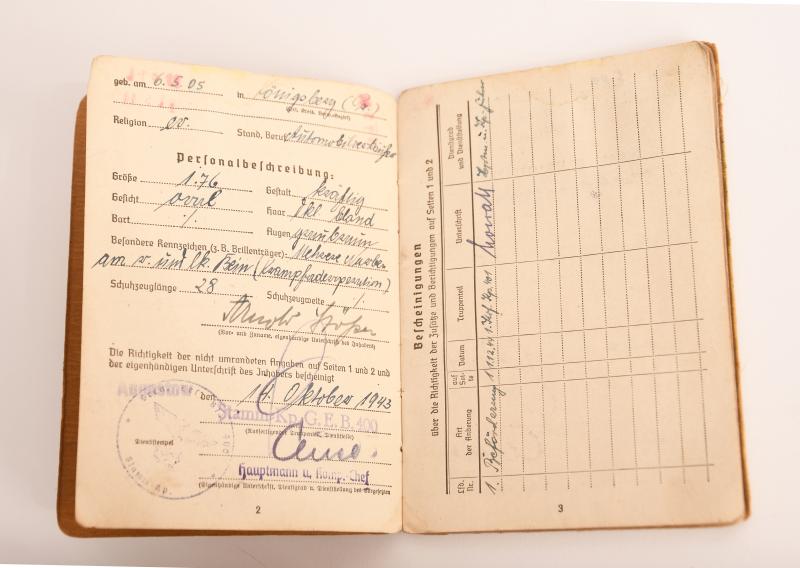 geb. am 6.5.05 in Königsberg (Pr.)
Religion ev. Stand, Beruf Automobilverkäufer
Personalbeschreibung:
Größe 1.76 Gestalt kräftig
Gesicht oval Haar dkl blond
Bart ./. Augen graubraun
Besondere Kennzeichen (z. B. Brillenträger): Mehrere Narben
am r. und lk. Bein (Krampfaderoperation)
Schuhzeuglänge 28 Schuhzeugweite /
(Vor- und Zuname, eigenhändige Unterschrift des Inhabers)
Die Richtigkeit der nicht umrandeten Angaben auf Seiten 1 und 2 und
der eigenhändigen Unterschrift des Inhabers bescheinigt
den 14. Oktober 1943
Stamm-Kp. G.E.B. 400
(Ausfertigender Truppenteil, Dienststelle)
Dienststempel
Hauptmann u. Komp.-Chef
(Eigenhändige Unterschrift, Dienstgrad u. Dienststellung des Vorgesetzten)
2
Bescheinigungen
über die Richtigkeit der Zusätze und Berichtigungen auf Seiten 1 und 2
Lfd. Nr. Art der Änderung auf Seite Datum Truppenteil Unterschrift Dienstgrad und Dienststellung
1. Beförderung 1 1.12.44
3